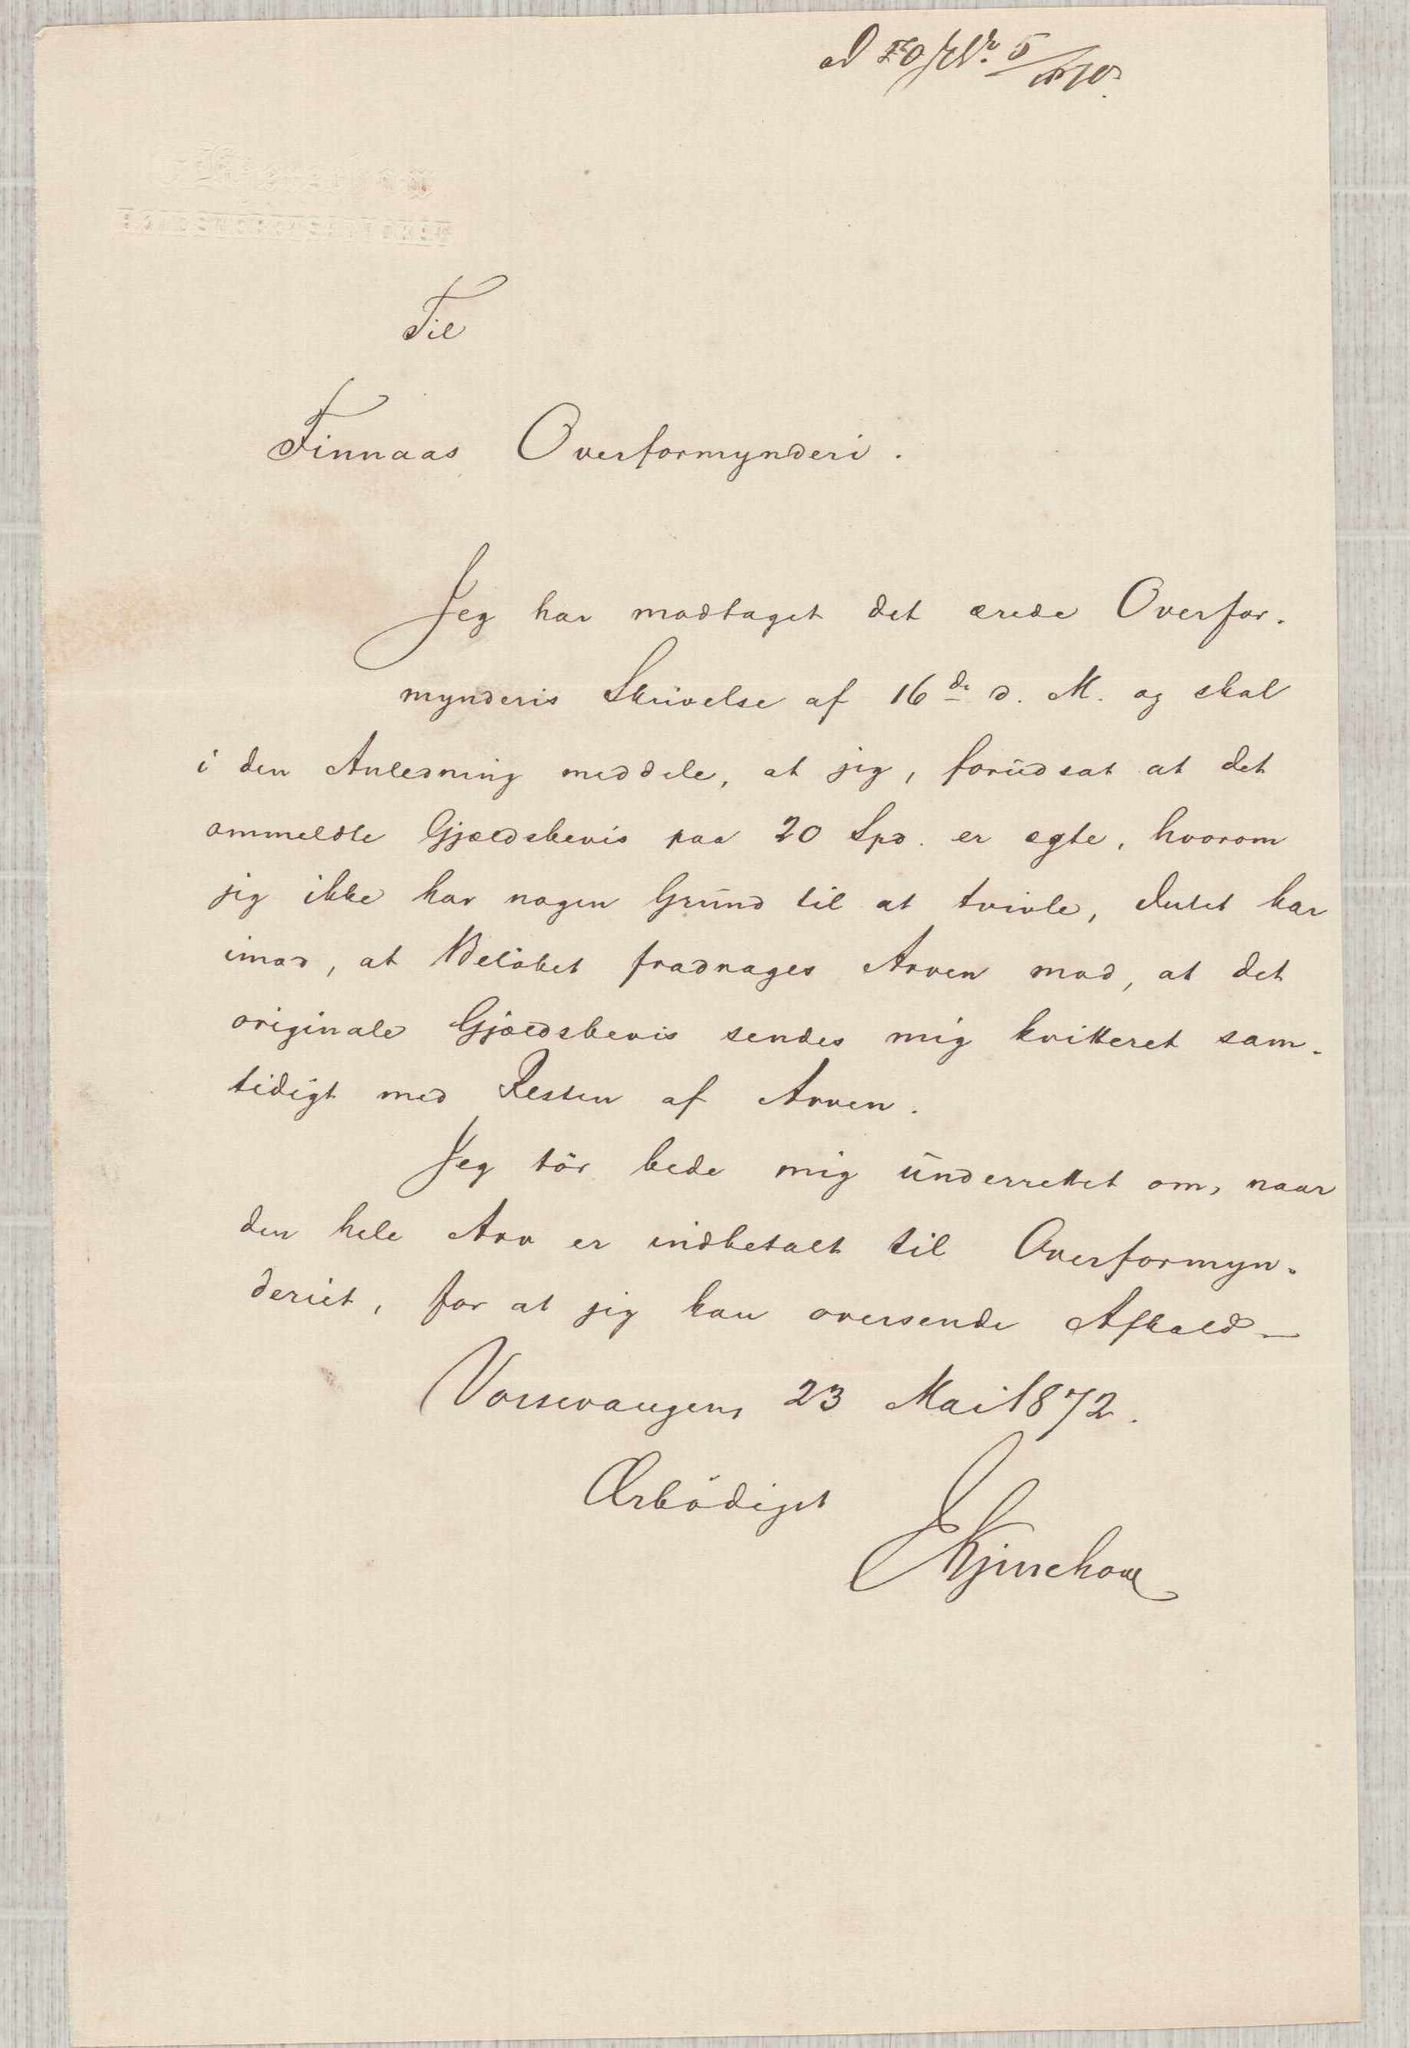 Til
Finnaas Overformynderi.
Jeg har modtaget det ærede Overfor-
mynderis Skrivelse af 16de d. M. og skal
i den Anledning meddele, at jeg, forudsat at det
ommeldte Gjældsbevis paa 20 Spd. er ægte, hvorom
jeg ikke har nogen Grund til at tvivle, Intet har
imod, at Beløbet fradrages Arven mod, at det
originale Gjældsbevis sendes mig kvitteret sam-
tidigt med Resten af Arven.
Jeg tör bede mig underrettet om, naar
den hele Arv er indbetalt til Overformyn-
deriet, for at jeg kan oversende Afkald —
Vossevangen, 23 Mai 1872.
Ærbödigst